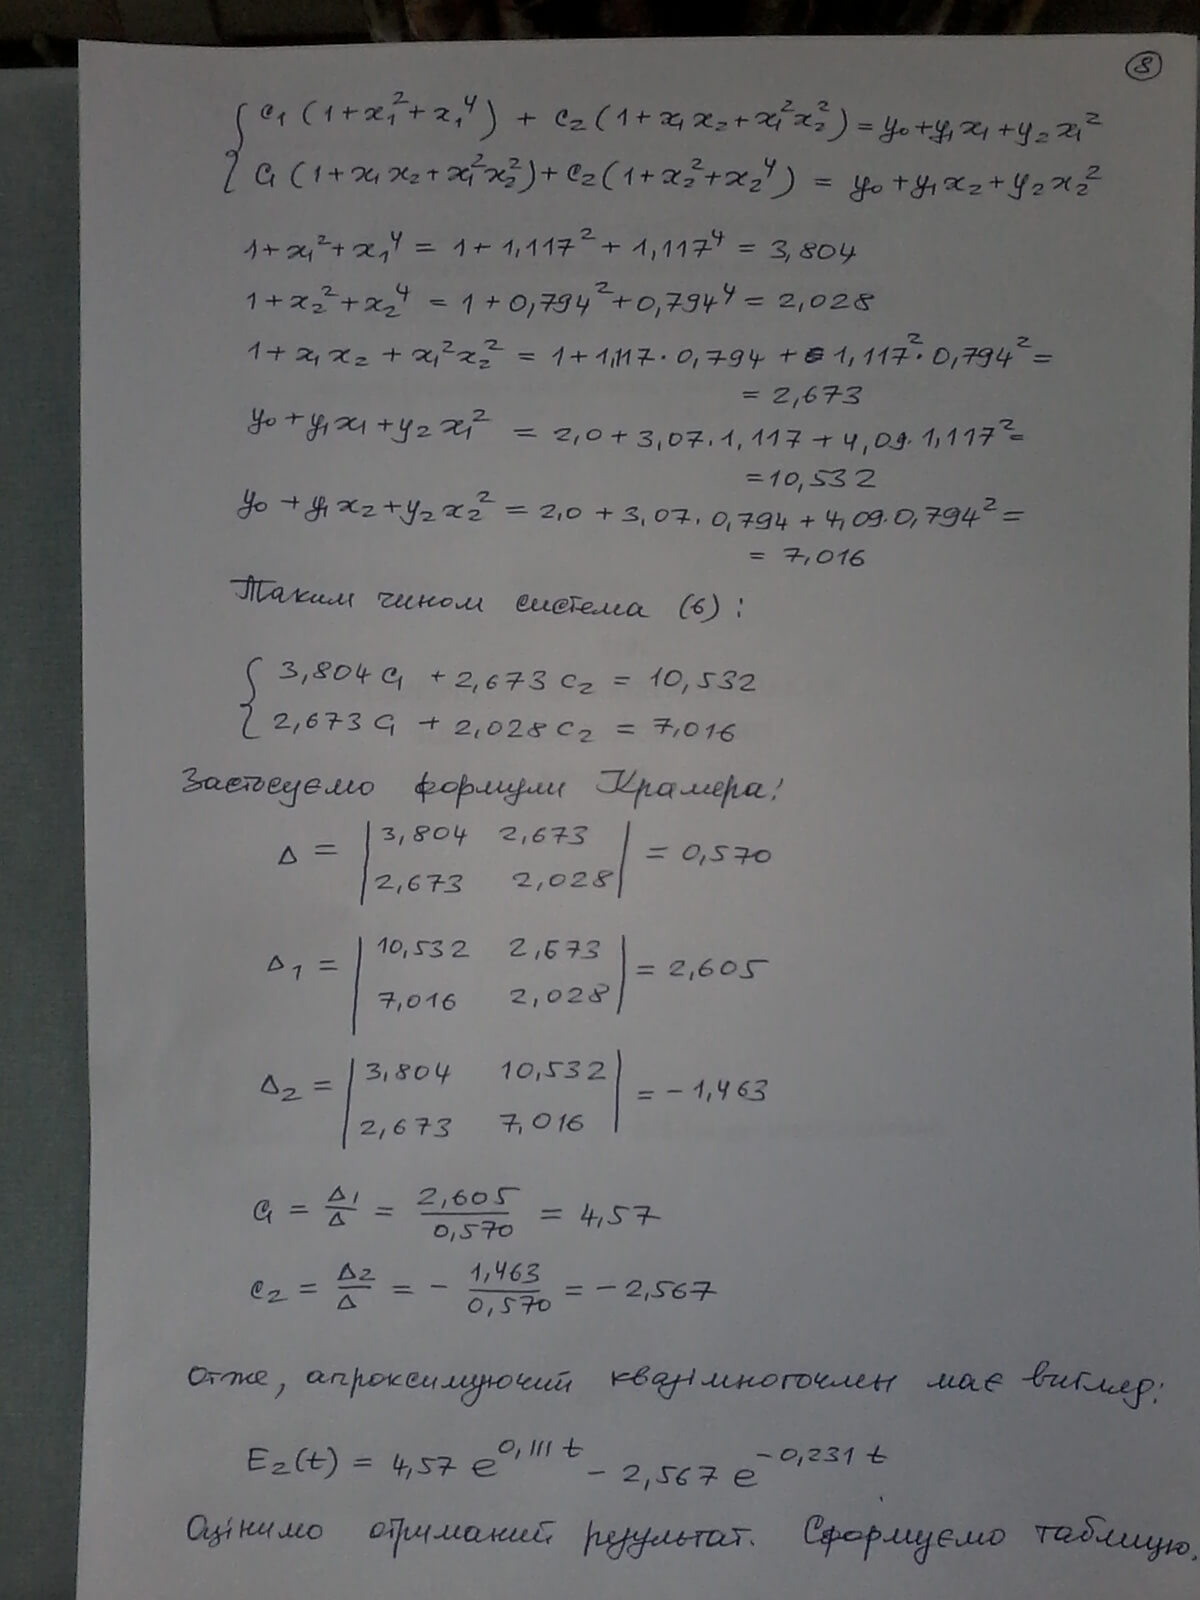 8
c₁(1+x₁²+x₁⁴) + c₂(1+x₁x₂+x₁²x₂²) = y₀+y₁x₁+y₂x₁²
c₁(1+x₁x₂+x₁²x₂²)+c₂(1+x₂²+x₂⁴) = y₀+y₁x₂+y₂x₂²
1+x₁²+x₁⁴ = 1+1,117²+1,117⁴ = 3,804
1+x₂²+x₂⁴ = 1+0,794²+0,794⁴ = 2,028
1+x₁x₂+x₁²x₂² = 1+1,117·0,794 + 1,117²·0,794² =
= 2,673
y₀+y₁x₁+y₂x₁² = 2,0+3,07·1,117+4,09·1,117² =
=10,532
y₀+y₁x₂+y₂x₂² = 2,0+3,07·0,794+4,09·0,794² =
= 7,016
Таким чином система (6):
3,804c₁ + 2,673c₂ = 10,532
2,673c₁ + 2,028c₂ = 7,016
Застосуємо формули Крамера:
Δ = |3,804 2,673| = 0,570
|2,673 2,028|
Δ₁ = |10,532 2,673| = 2,605
|7,016 2,028|
Δ₂ = |3,804 10,532| = -1,463
|2,673 7,016|
c₁ = Δ₁/Δ = 2,605/0,570 = 4,57
c₂ = Δ₂/Δ = - 1,463/0,570 = -2,567
Отже, апроксимуючий квазімногочлен має вигляд:
E₂(t) = 4,57 e^{0,111t} - 2,567 e^{-0,231t}
Оцінимо отриманий результат. Сформуємо таблицю.